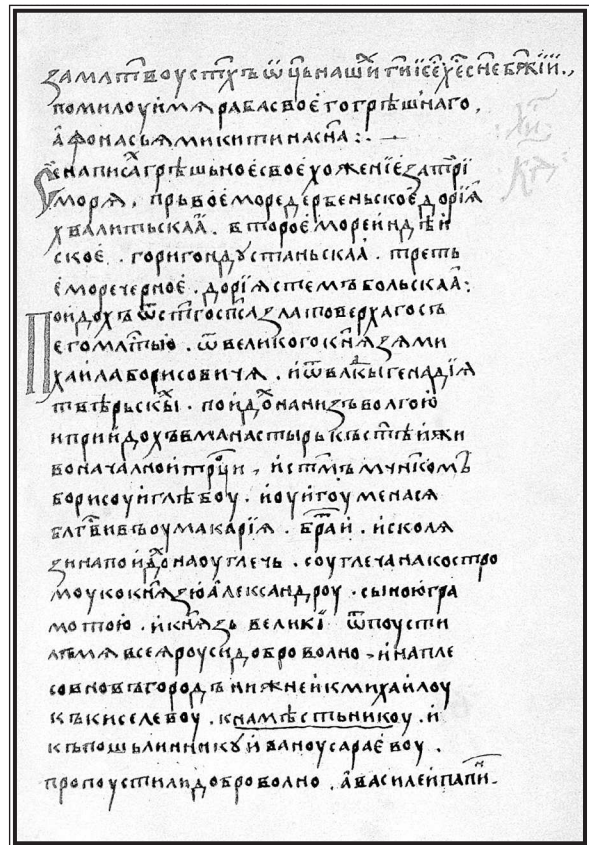 за мл҃твѹ ст҃хъ ѿц҃ь наши г҃и іс҃е х҃е с҃не бж҃їи.,
помилоуи мя раба своего грѣшнаго,
афонасья микитина сн҃а : . —
Се написа грѣшьное свое хоженїе за трї
моря, прьвое море дербеньское дорїя
хвалитьскаа . второе море индѣи
ское . гори гондустаньскаа . треть
е море черное . дорїя стемъбольскаа :
Поидохъ ѿ ст҃го сп҃са златоверхаго съ
его мл҃тью . ѿ великого кн҃язя ми
хаила борисовичя . и ѿ влк҃ы генадїя
тверьскы . поидо на низъ волгою
и приидохъ в манастырь къ ст҃ѣи жи
воначалнои трци , и ст҃мъ мч҃нкомъ
борисоу и глѣбоу . и оу игоуменася
блг҃вивъ оу макарїя . братаи . и с коля
зина поидо на оуглечь . с оуглеча на костро
моу ко кн҃язю александроу . с ыною гра
мотою . и кн҃язь великї ѿпоусти
мя всея роуси доброволно . и на пле
со в новъгородъ нижнеи к михаилоу
къ киселевоу . к намѣстьникоу . и
къ пошьлинникѹ иваноу сараевоу .
пропоустили доброволно . а василеи папин.